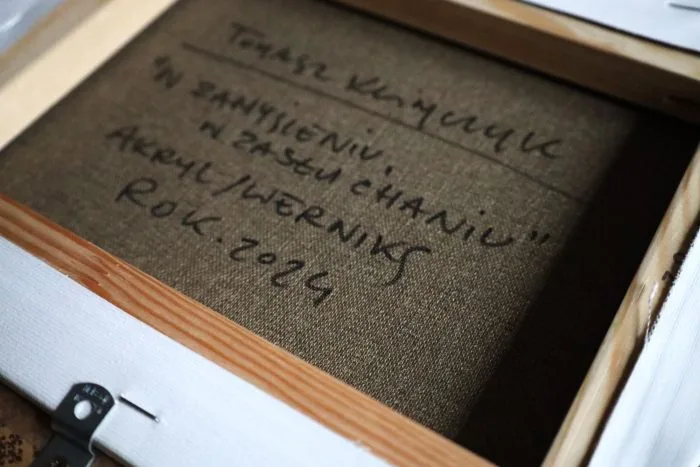 TOMASZ
"W ZAMYŚLENIU,
W ZASŁUCHANIU"
AKRYL/WERNIKS
ROK. 2024